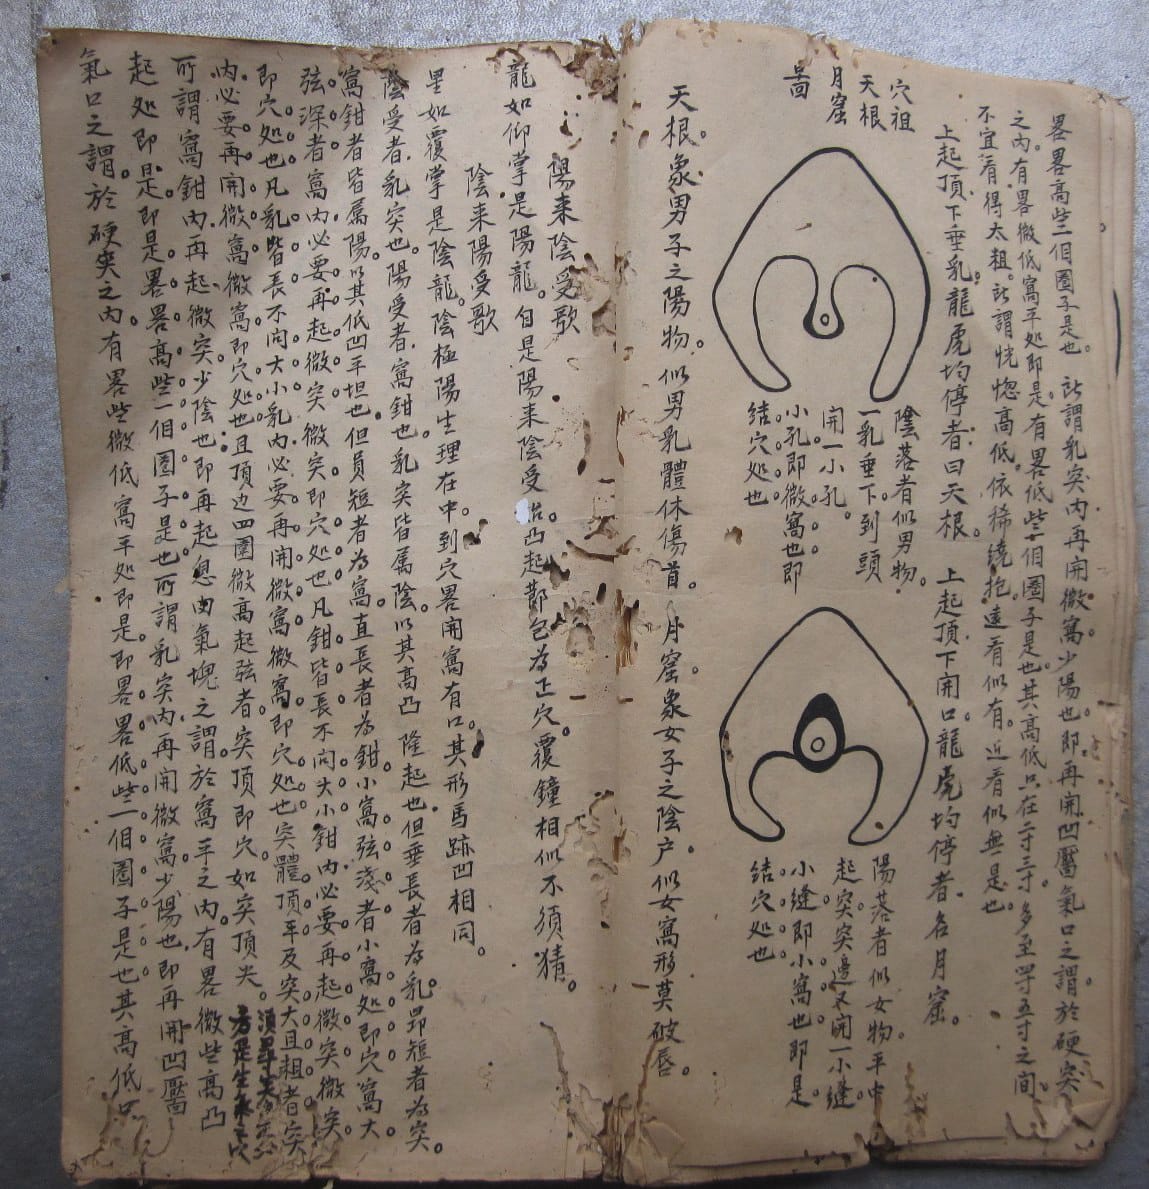 畧畧高些一個圈子是也。所謂乳突内再開微窩少陽也。即再開凹靨氣口之謂。於硬突
之内。有畧微低窩平処即是。有畧低些一個圈子是也。其高低只在二寸三寸。多至四寸五寸之間。
不宜看得太粗。所謂恍惚高低。依稀繞抱。遠看似有。近看似無是也
上起頂。下垂乳。龍虎均停者。曰天根。上起頂。下開口。龍虎均停者。名月窟。
穴祖
天根
月窟
啚
陰落者似男物。
一乳垂下。到頭
開一小孔。
小孔即微窩也。即
結穴処也
陽落者似女物。平中
起突。突邉又開一小縫
小縫即小窩也。即是
結穴処也
天根。象男子之陽物。似男乳體休傷首。月窟。象女子之陰户。似女窩形莫破唇。
陽来陰受歌
龍如仰掌是陽龍。自是陽来陰受 凸起 包為正穴。覆鐘相似不須猜。
陰来陽受歌
星如覆掌是陰龍。陰極陽生理在中。到穴畧開窩有口。其形馬跡凹相同。
陰受者。乳突也。陽受者。窩鉗也。乳突皆属陰。以其高凸隆起也。但垂長者為乳。昂短者為突。
窩鉗者。皆属陽。以其低凹平坦也。但員短者為窩。直長者為鉗。小窩弦淺者。小窩処即穴。窩大
弦深者。窩内必要再起微突。微突即穴処也。凡鉗皆長。不向大小鉗内必要再起微突。微突
即穴処也。凡乳皆長。不向大小乳内必要再開微窩。微窩即穴処也。突體頂平及突大且粗者。突
内必要再開微窩。微窩即穴処也。且頂边四圍微高起弦者。突頂即穴。如突頂尖。
方是生氣之穴
所謂窩鉗内再起微突。少陰也。即再起息肉氣塊之謂。於窩平之内。有畧微些高凸
起処即是。即是畧畧高些一個圈子是也。所謂乳突内再開微窩。少陽也。即再開凹靨
氣口之謂。於硬突之内。有畧些微低窩平処即是。即畧畧低些一個圈子是也。其高低只